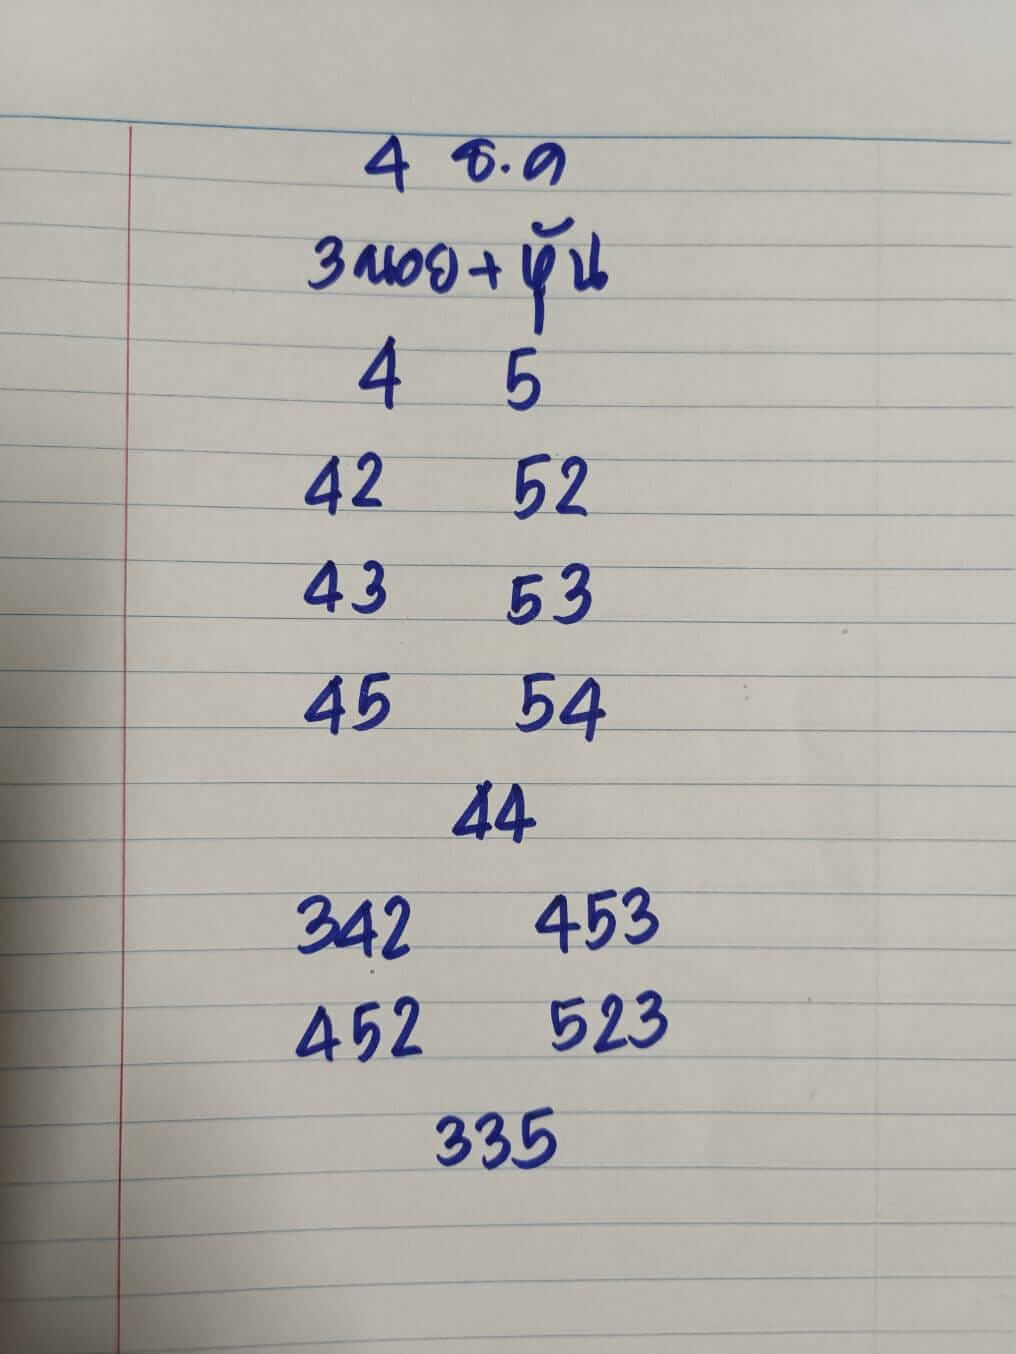 4 ธ.ค
3นอย+หุ้น
4 5
42 52
43 53
45 54
44
342 453
452 523
335